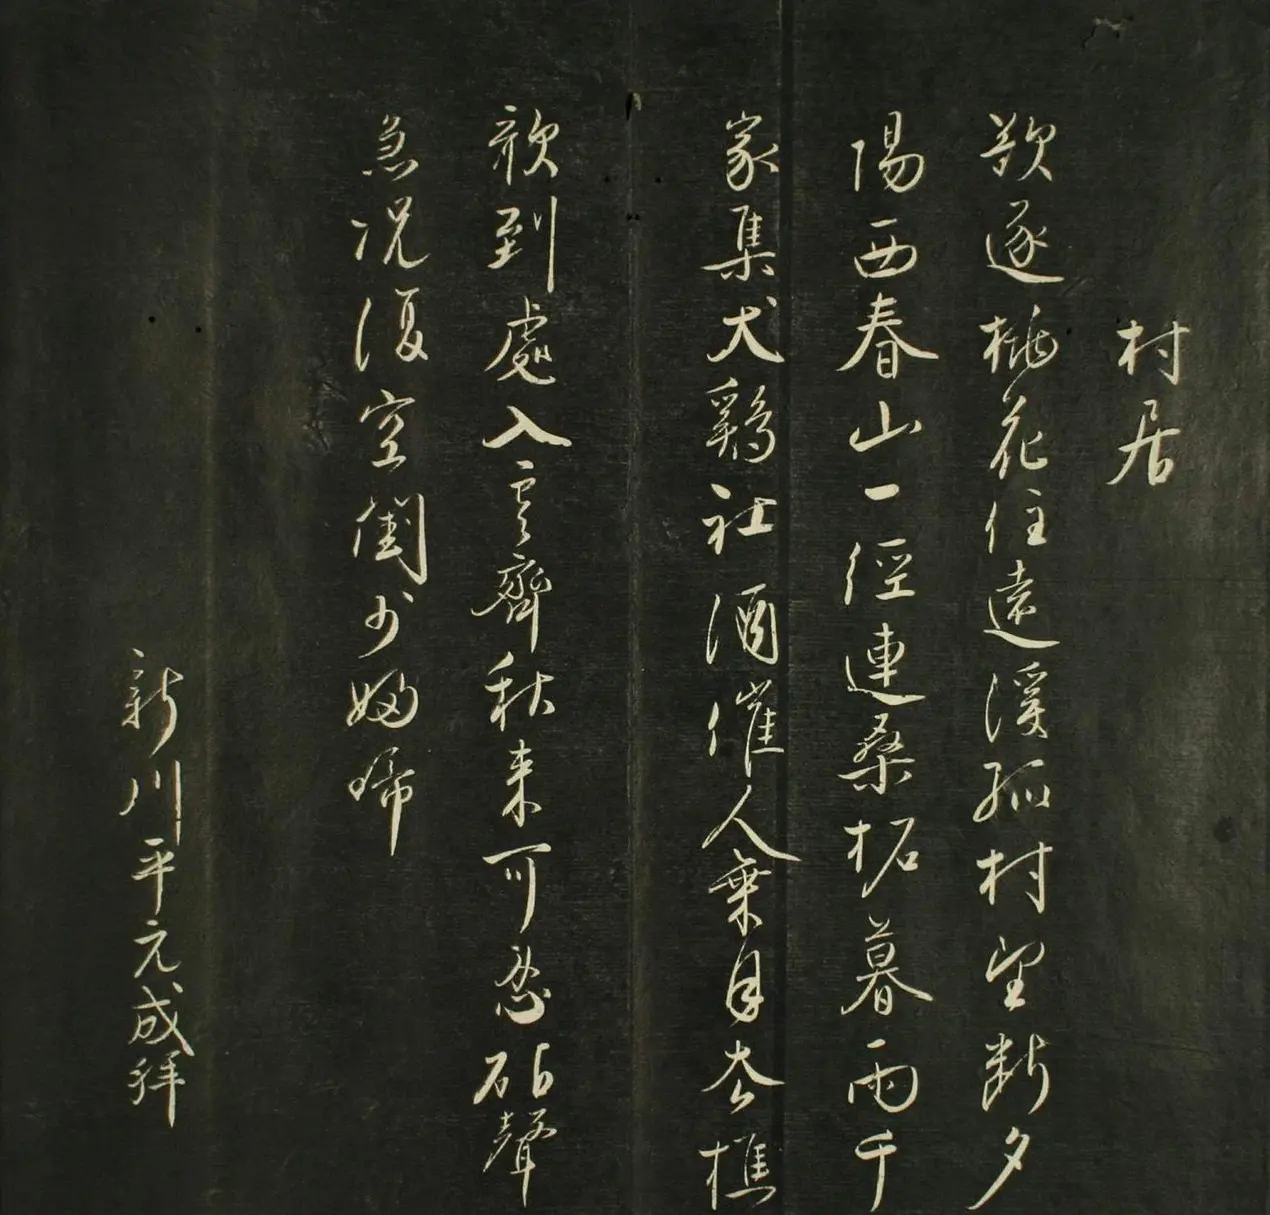 村居
欲逐桃花住遠溪孤村望斷夕
陽西春山一徑連桑柘暮雨千
家集犬鷄社酒催人乗月去樵
歌到處入雲齊秋来可忍砧聲
急况復空閨少婦啼
新川平元成拜